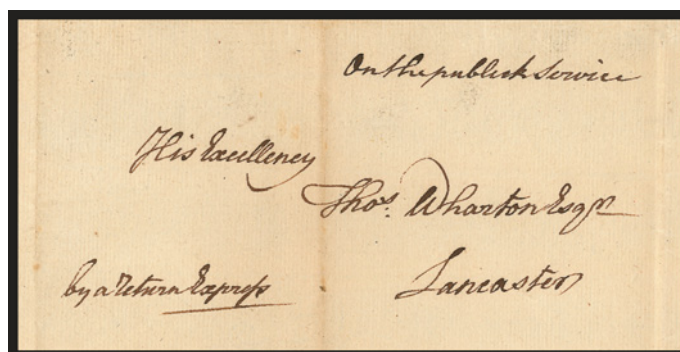 On the publick Service
His Excellency
Thos. Wharton Esqr.
Lancaster
by a return Express